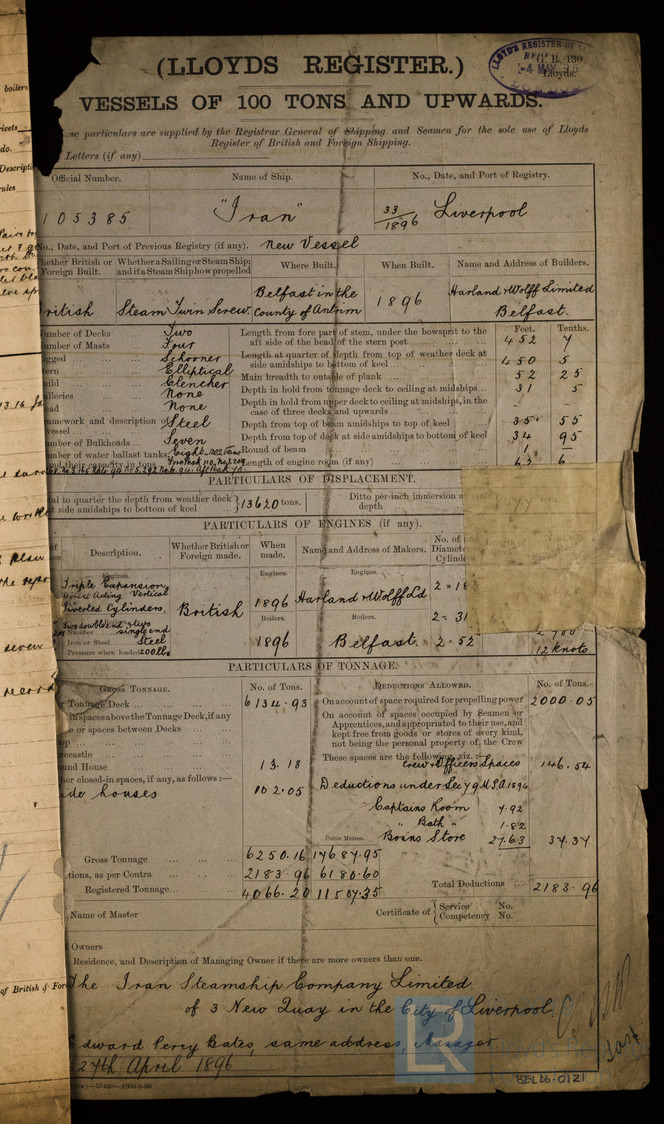 (LLOYDS REGISTER.)
G. R. 130
Lloyds.
LLOYD'S REGISTER OF
4 MAY
VESSELS OF 100 TONS AND UPWARDS.
particulars are supplied by the Registrar General of Shipping and Seamen for the sole use of Lloyds
Register of British and Foreign Shipping.
Letters (if any)
Official Number. Name of Ship. No., Date, and Port of Registry.
105385 "Iran" 33/1896 Liverpool
No., Date, and Port of Previous Registry (if any). New Vessel
Whether British or Foreign Built. Whether a Sailing or Steam Ship; and if a Steam Ship how propelled Where Built. When Built. Name and Address of Builders.
British Steam Twin Screw Belfast in the County of Antrim 1896 Harland & Wolff Limited Belfast.
Feet. Tenths.
Number of Decks Two
Number of Masts Four
Rigged Schooner
Stern Elliptical
Build Clencher
Galleries None
Head None
Framework and description of vessel Steel
Number of Bulkheads Seven
Number of water ballast tanks, Eight
and their capacity in tons
Length from fore part of stem, under the bowsprit to the aft side of the head of the stern post 452 7
Length at quarter of depth from top of weather deck at side amidships to bottom of keel 450 5
Main breadth to outside of plank 52 25
Depth in hold from tonnage deck to ceiling at midships 31 5
Depth in hold from upper deck to ceiling at midships, in the case of three decks and upwards - -
Depth from top of beam amidships to top of keel 35 55
Depth from top of deck at side amidships to bottom of keel 34 95
Round of beam 1 -
Length of engine room (if any) 63 6
PARTICULARS OF DISPLACEMENT.
to quarter the depth from weather deck
at side amidships to bottom of keel } 13620 tons.
Ditto per inch immersion
depth
PARTICULARS OF ENGINES (if any).
Description. Whether British or Foreign made. When made. Name and Address of Makers.
Engines. Engines. Engines.
Triple Expansion
Direct Acting Vertical
Inverted Cylinders.
British 1896 Harland & Wolff Ld
2 = 18
2 = 31
Boilers. Boilers.
Number single end
Iron or Steel Steel
Pressure when loaded 200 lbs
1896 Belfast. 2 = 52
12 Knots
PARTICULARS OF TONNAGE.
GROSS TONNAGE. No. of Tons. DEDUCTIONS ALLOWED. No. of Tons.
Tonnage Deck 6134.93
On account of space required for propelling power 2000.05
in spaces above the Tonnage Deck, if any
or spaces between Decks
On account of spaces occupied by Seamen or
Apprentices, and appropriated to their use, and
kept free from goods or stores of every kind,
not being the personal property of the Crew
Forecastle
Round House 13.18
These spaces are the following, viz.:—
Crew & Officers Spaces 146.54
other closed-in spaces, if any, as follows:—
Side houses 102.05
Deductions under Sec 79 M.S.A. 1894
Captains Room 4.92
" Bath " 1.82
Cubic Metres. Bosns Store 27.63 37.37
Gross Tonnage 6250.16 17687.95
Deductions, as per Contra 2183.96 6180.60
Registered Tonnage 4066.20 11507.35
Total Deductions 2183.96
Name of Master
Certificate of { Service No.
Competency No.
Owners
Residence, and Description of Managing Owner if there are more owners than one.
The Iran Steamship Company Limited
of 3 New Quay in the City of Liverpool.
Edward Percy Bates, same address, Manager.
27th April 1896
BEL66-0121
boilers
do.
of British & For